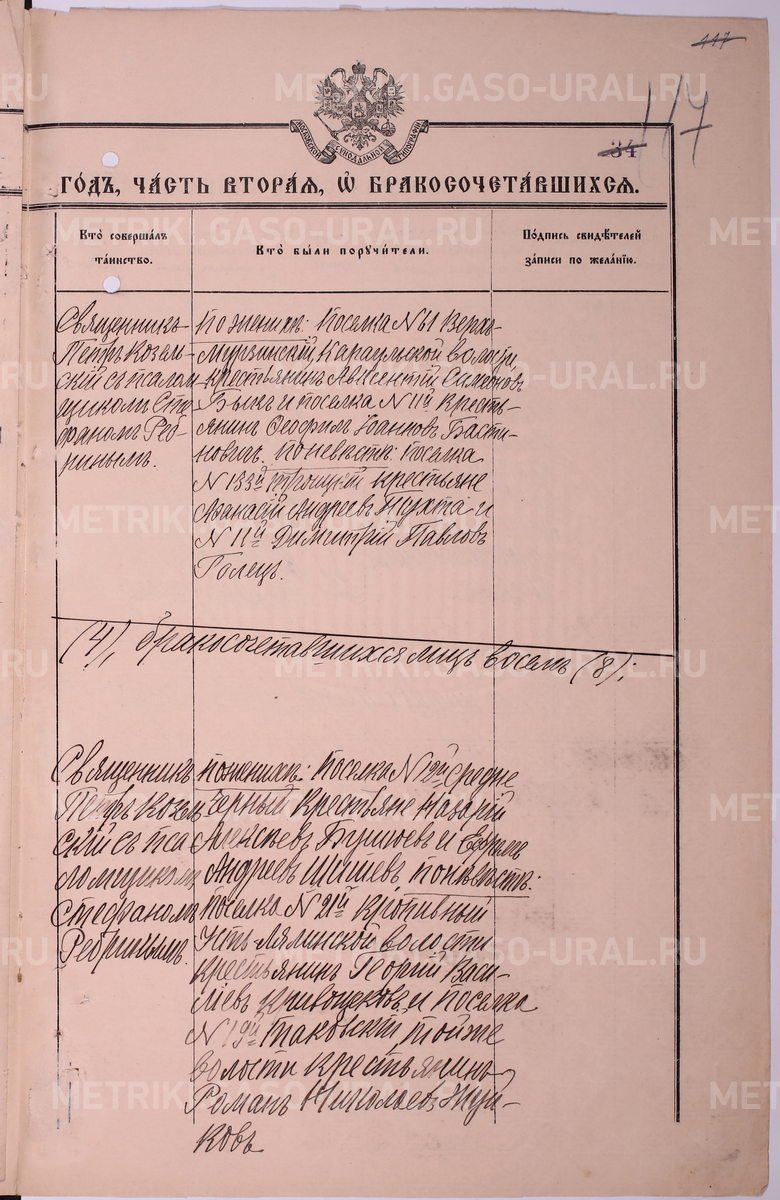 117
117
34
МОСКОВСКОЙ СѴНОДАЛЬНОЙ ТИПОГРАФІИ
ГО́ДЪ, ЧА́СТЬ ВТОРА́Я, Ѡ҆ БРАКОСОЧЕТА́ВШИХСЯ.
Кто̀ соверша́лъ
та́инство.
Кто̀ бы́ли поручи́тели.
По́дпись свидѣ́телей
за́писи по жела́нію.
Священникъ
Петръ Козель-
скій съ псалом
щикомъ Сте
фаномъ Реб-
ринымъ.
По женихѣ: поселка N 1 Верхъ-
Мурзинскій, Караульской волости,
крестьянинъ Авксентій Симеоновъ
Быкъ и поселка N 11й кресть-
янинъ Ѳеофилъ Іоанновъ Басти-
новичъ. По невѣстѣ: поселка
N 133й Троицкій крестьяне
Аѳанасій Андреевъ Пухта и
N 11й Димитрій Павловъ
Голецъ.
(4), бракосочетавшихся лицъ восемь (8);
Священникъ
Петръ Козель
скій съ пса
ломщикомъ
Стефаномъ
Ребринымъ.
По женихѣ: поселка N 2й Средне
Черный крестьяне Назарій
Алексѣевъ и Ефремъ
Андреевъ Шишевъ, по невѣстѣ:
поселка N 21й Кропивный
Усть-Лялинской волости
крестьянинъ Георгій Васи-
ліевъ Кривощековъ и поселка
N 19й Таковскій, той же
волости крестьянинъ
Романъ Николаевъ Жуй-
ковъ
METRIKI.GASO-URAL.RU